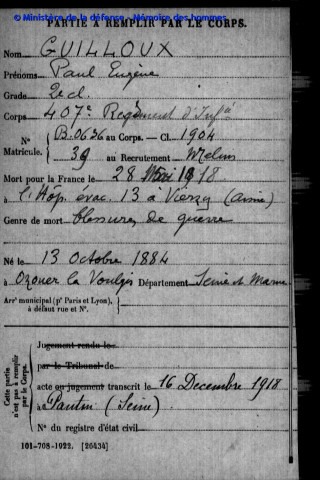 © Ministère de la défense - Mémoire des hommes
PARTIE À REMPLIR PAR LE CORPS.
Nom GUILLOUX
Prénoms Paul Eugène
Grade 2e cl.
Corps 407e Régiment d'Infie
N° Matricule. { B.0636 au Corps. — Cl. 1904
39 au Recrutement Melun
Mort pour la France le 28 Mai 1918
à l'Hôp. évac. 13 à Vierzy (Aisne)
Genre de mort blessures de guerre
Né le 13 Octobre 1884
à Ozouer la Voulgis Département Seine et Marne
Arrt municipal (pr Paris et Lyon), à défaut rue et N°.
Cette partie n'est pas à remplir par le Corps.
Jugement rendu le
par le Tribunal de
acte ou jugement transcrit le 16 Decembre 1918
à Pantin (Seine).
N° du registre d'état civil
101-708-1922. [26434]